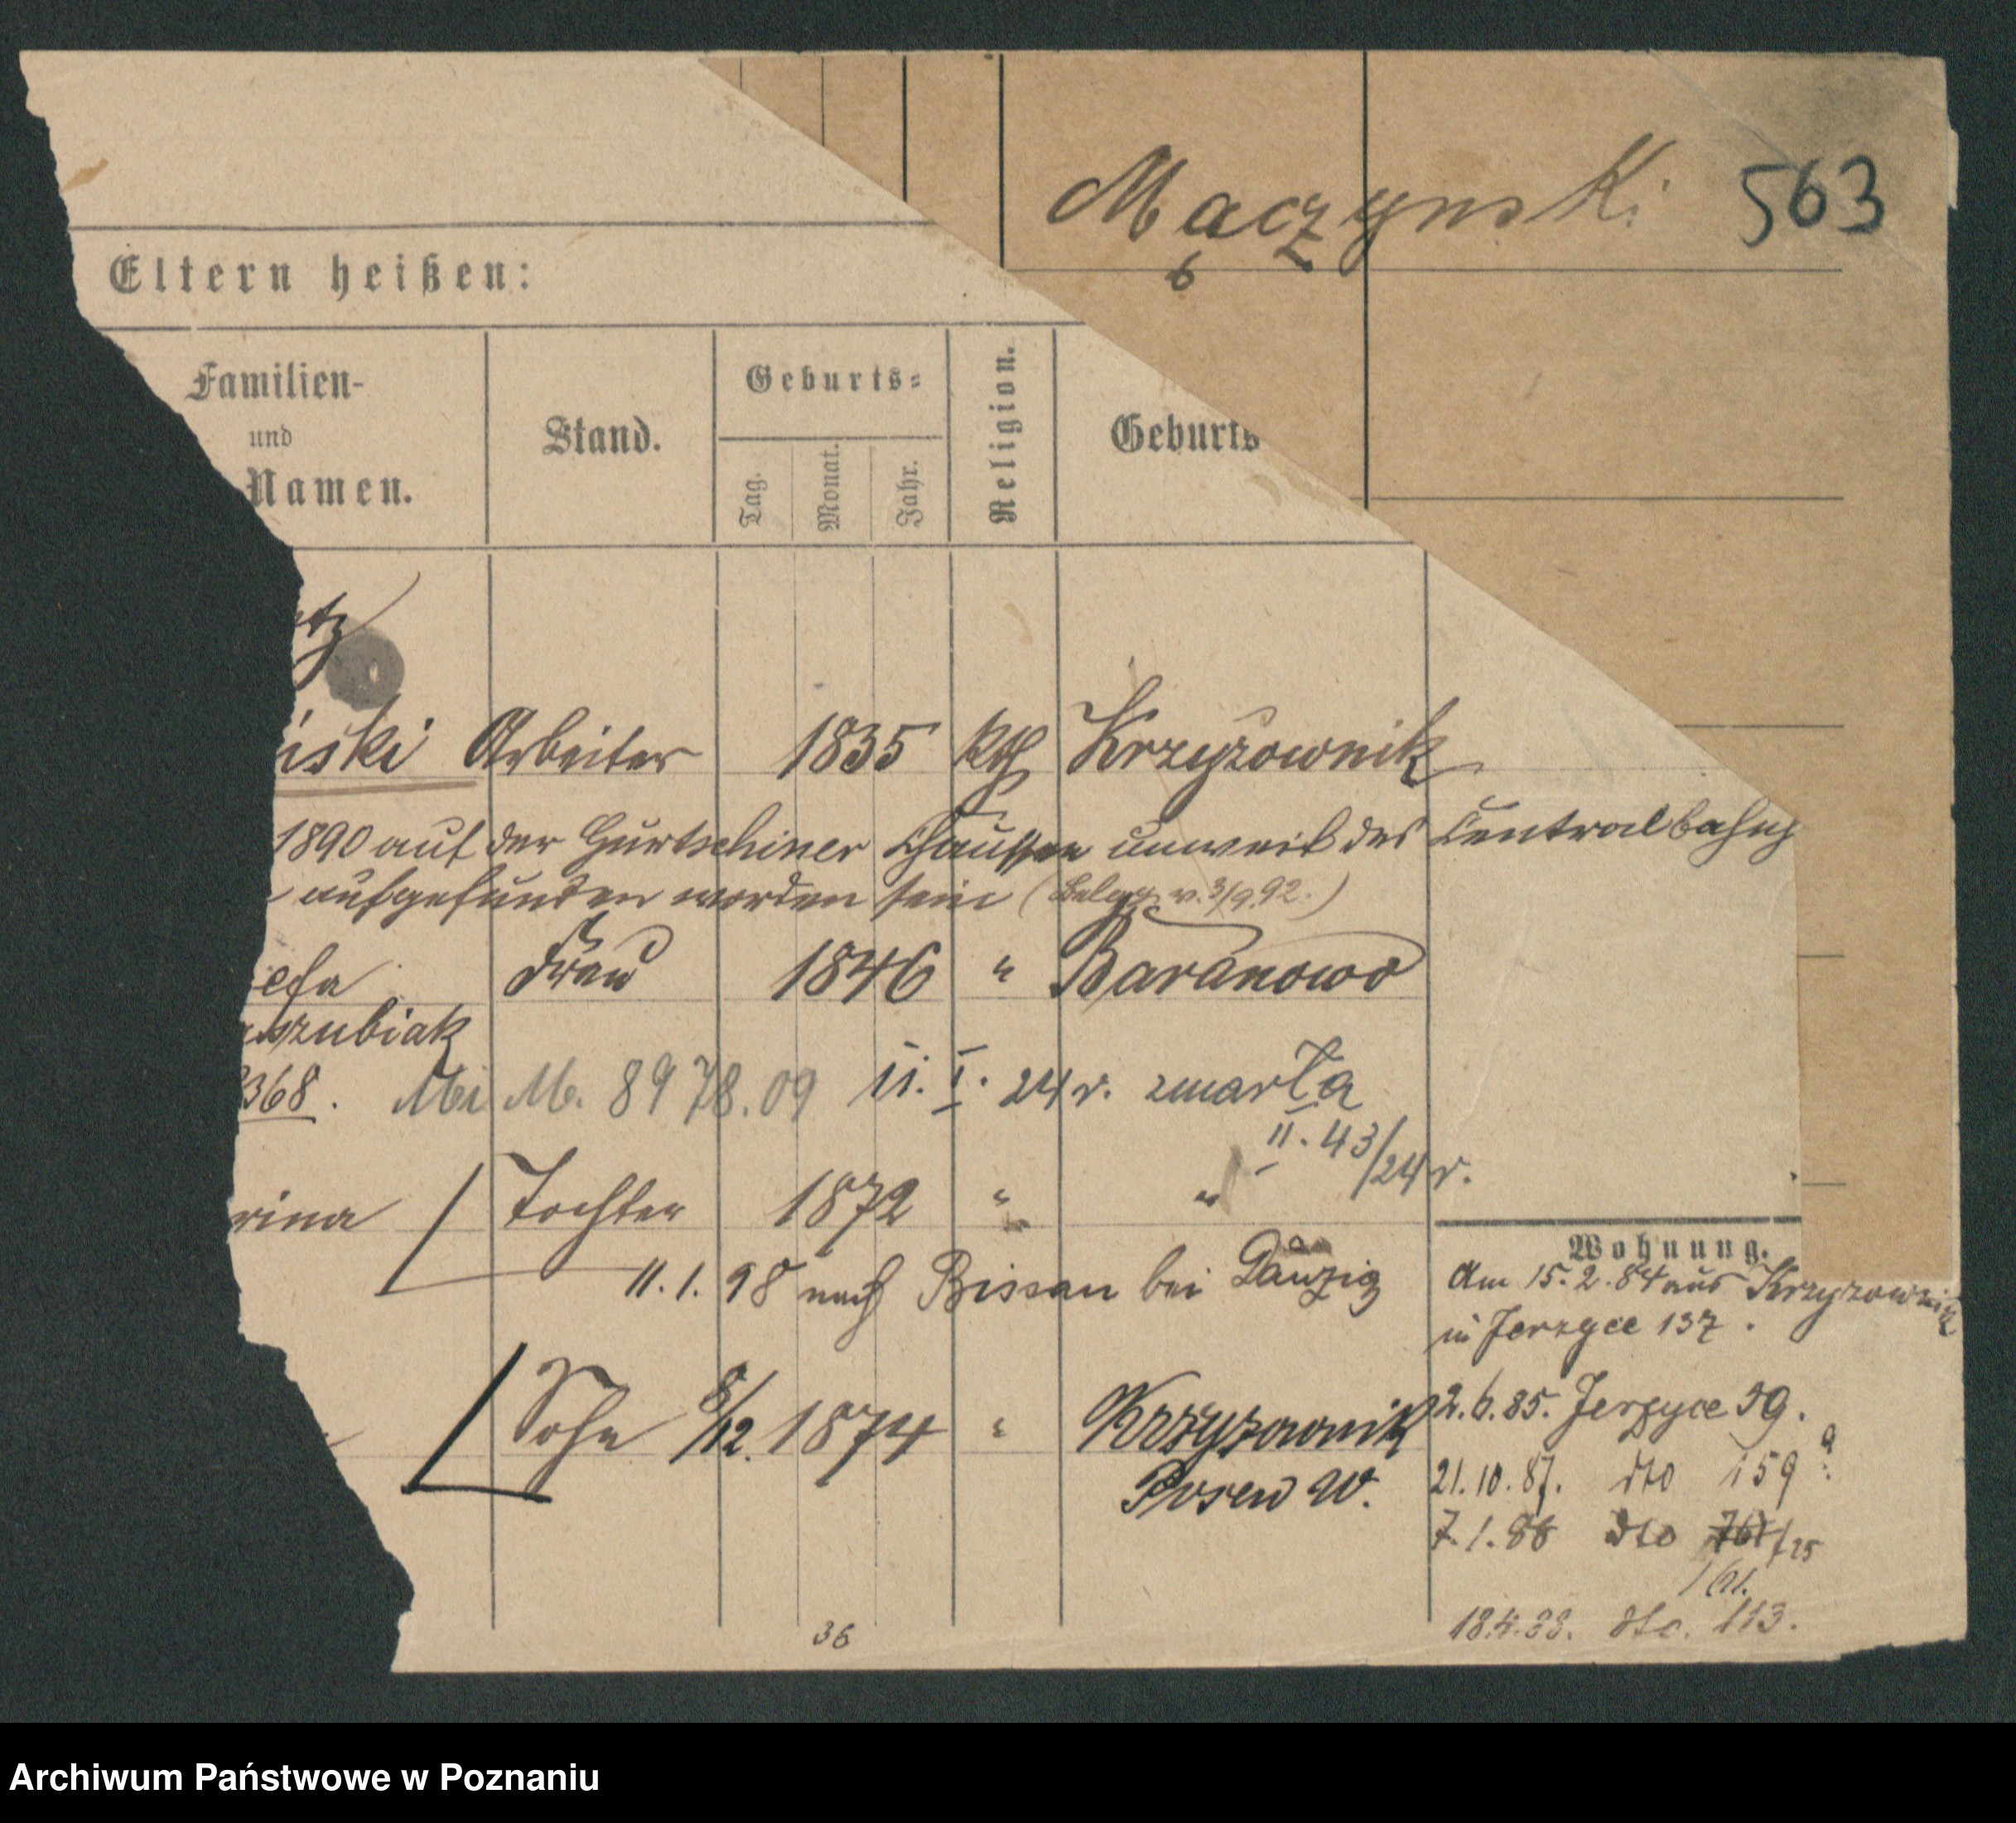 Mączynski 563
6
Eltern heißen:
Familien-
und
Namen.
Stand.
Geburts-
Tag.
Monat.
Jahr.
Religion.
Geburts
tz
iski Arbeiter 1835 kth Krzyżownik
1890 auf der Gurtschiner Chaussee unweit des Centralbahnh
aufgefunden worden sein (Belag v. 3/9.92.)
efa Frau 1846 " Baranowo
szubiak
368. M. 8978.09 11. I. 24 r. zmarła
II. 43/24 r.
rina Tochter 1872 " "
11.1.98 nach Bissau bei Danzig
Sohn 8/12. 1874 " Krzyzownik
Posen W.
36
Wohnung.
Am 15.2.84 aus Krzyzownik
in Jerzyce 137.
2.6.85. Jerzyce 59.
21.10.87. dto 159a
7.1.88 dto
18.4.88. dto. 113.